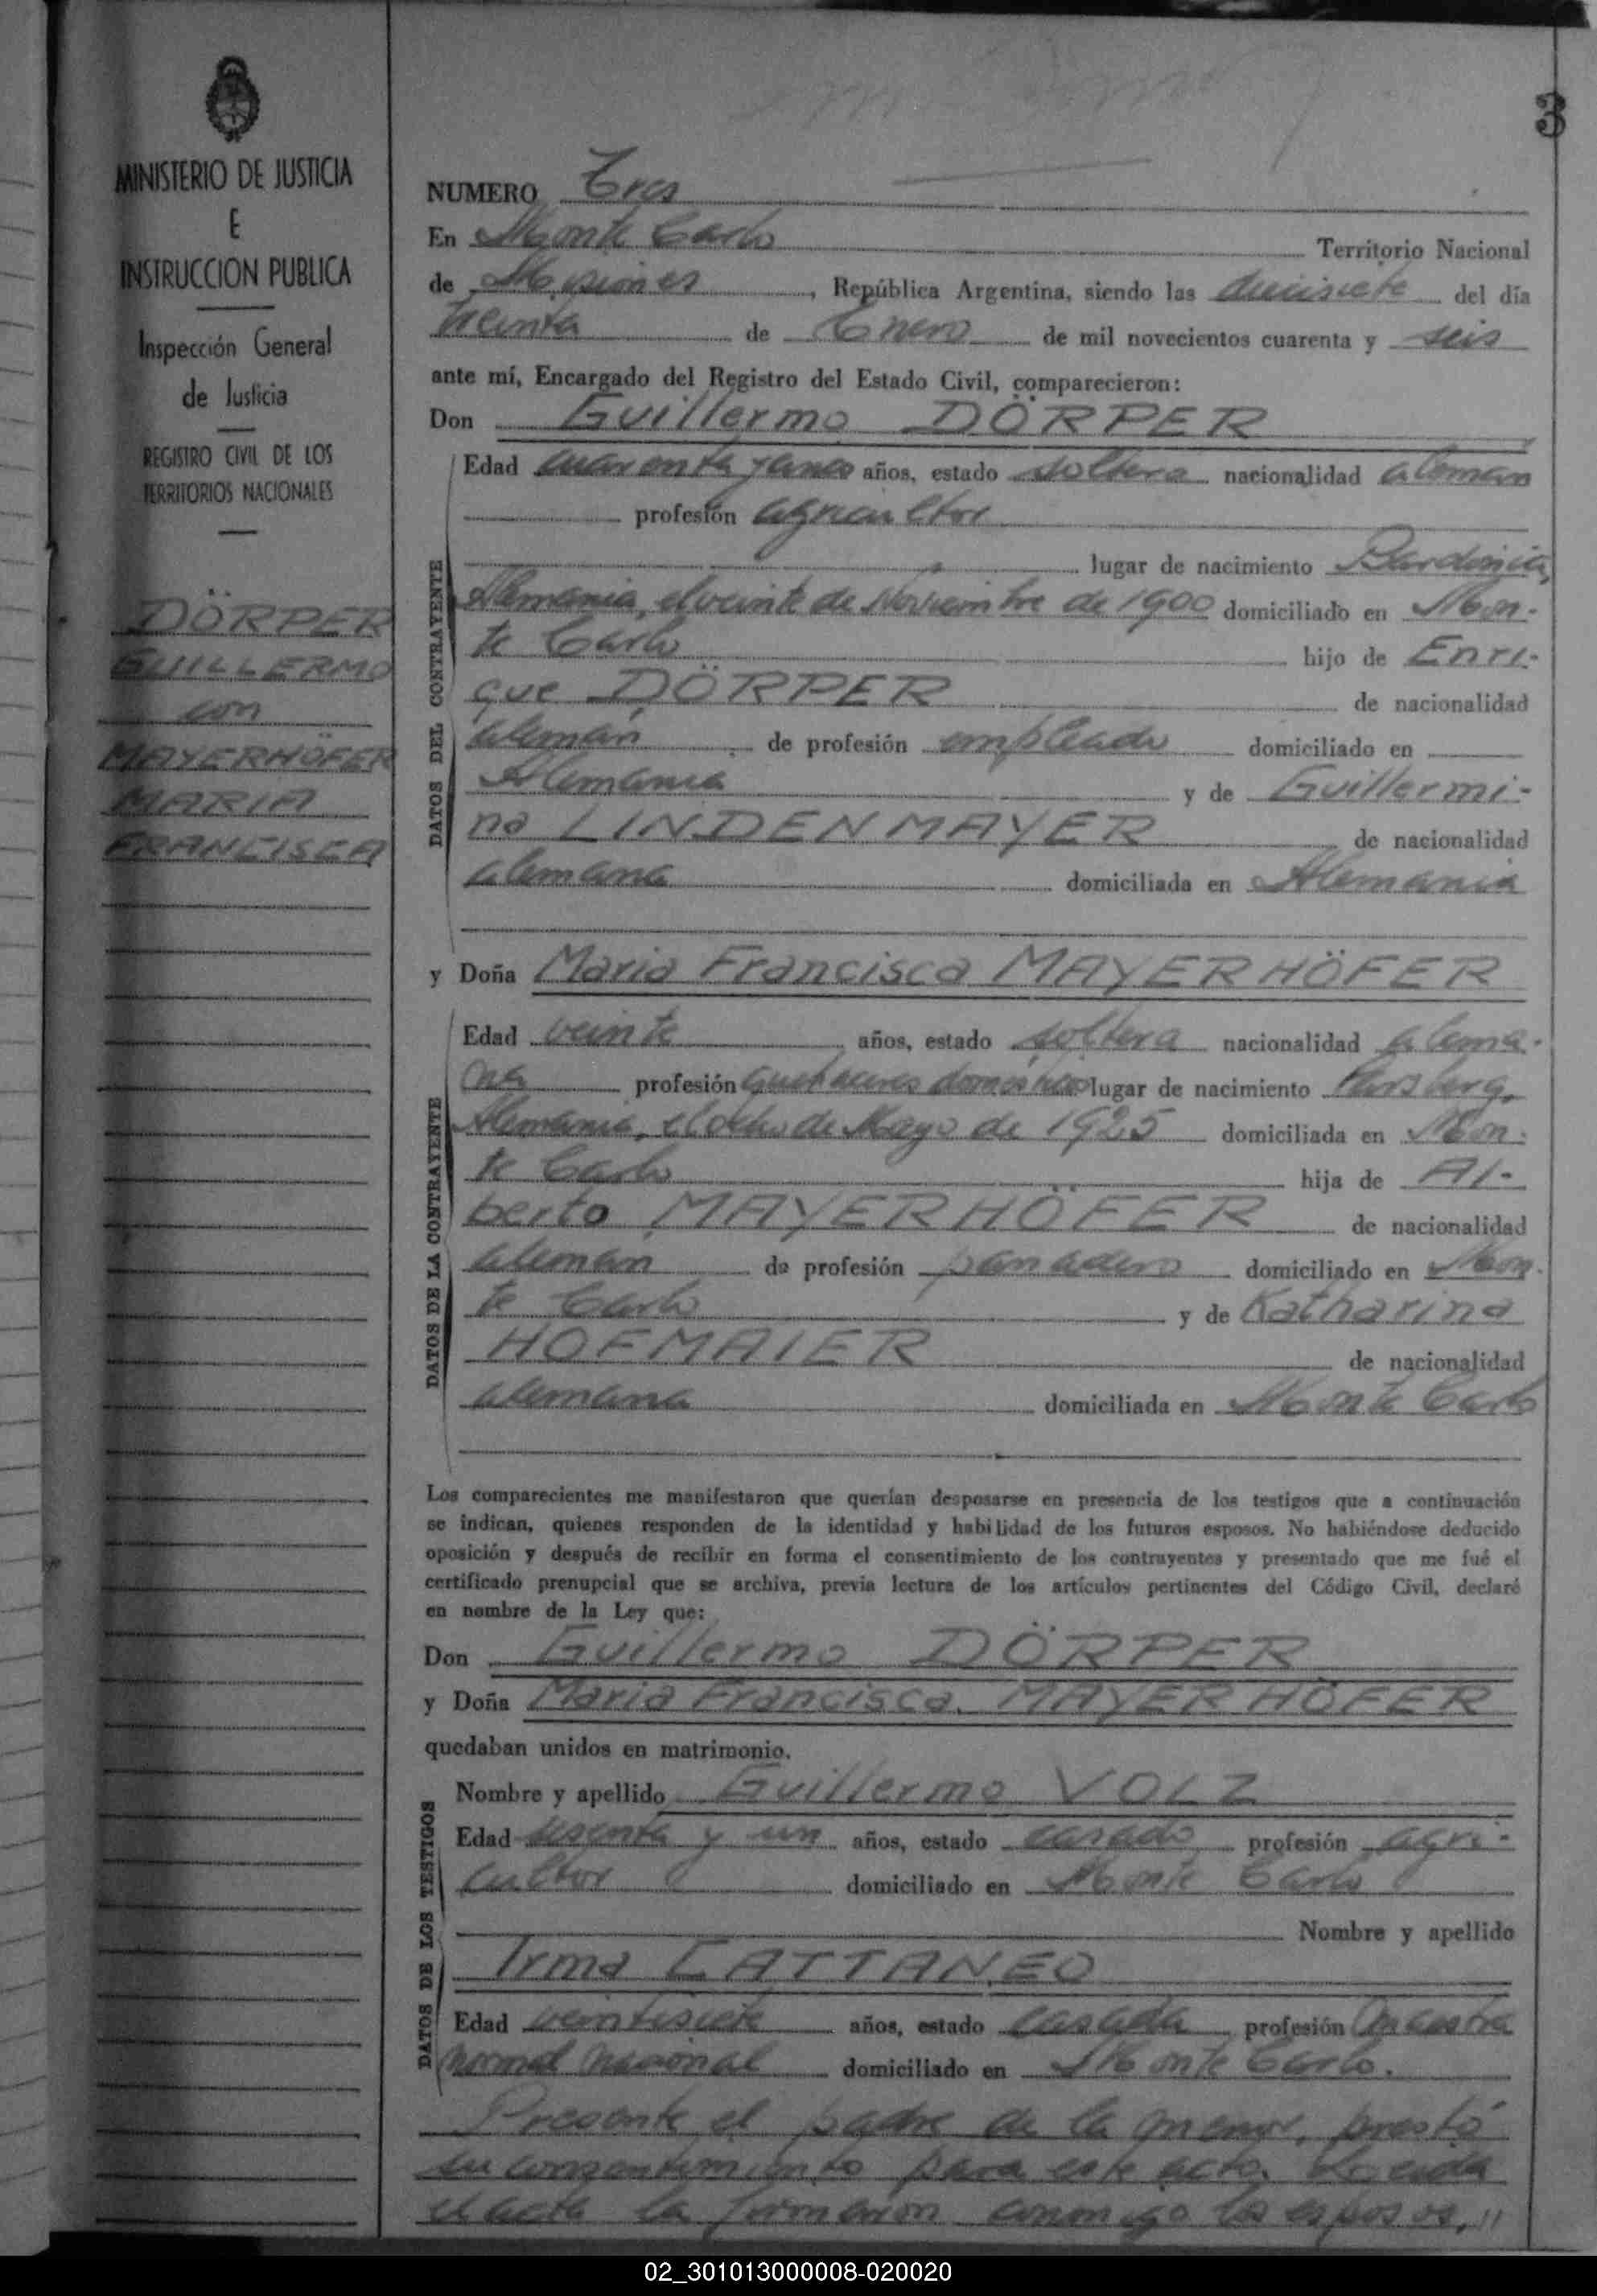 3
MINISTERIO DE JUSTICIA
E
INSTRUCCION PUBLICA
Inspección General
de Justicia
REGISTRO CIVIL DE LOS
TERRITORIOS NACIONALES
DÖRPER
GUILLERMO
con
MAYERHÖFER
MARIA
FRANCISCA
NUMERO Tres
En Monte Carlo Territorio Nacional
de Misiones, República Argentina, siendo las diecisiete del día
treinta de Enero de mil novecientos cuarenta y seis
ante mí, Encargado del Registro del Estado Civil, comparecieron:
Don Guillermo DÖRPER
DATOS DEL CONTRAYENTE
Edad cuarenta y cinco años, estado soltero nacionalidad aleman
profesión agricultor
lugar de nacimiento
Alemania, el veinte de Noviembre de 1900 domiciliado en Mon-
te Carlo hijo de Enri-
que DÖRPER de nacionalidad
alemán de profesión empleado domiciliado en
Alemania y de Guillermi-
na LINDENMAYER de nacionalidad
alemana domiciliada en Alemania
y Doña Maria Francisca MAYERHÖFER
DATOS DE LA CONTRAYENTE
Edad veinte años, estado soltera nacionalidad alema-
na profesión quehaceres domésticos lugar de nacimiento Parsberg,
Alemania, el ocho de Mayo de 1925 domiciliada en Mon-
te Carlo hija de Al-
berto MAYERHÖFER de nacionalidad
aleman de profesión panadero domiciliado en Mon-
te Carlo y de Katharina
HOFMAIER de nacionalidad
alemana domiciliada en Monte Carlo
Los comparecientes me manifestaron que querían desposarse en presencia de los testigos que a continuación
se indican, quienes responden de la identidad y habilidad de los futuros esposos. No habiéndose deducido
oposición y después de recibir en forma el consentimiento de los contrayentes y presentado que me fué el
certificado prenupcial que se archiva, previa lectura de los artículos pertinentes del Código Civil, declaré
en nombre de la Ley que:
Don Guillermo DÖRPER
y Doña Maria Francisca MAYERHÖFER
quedaban unidos en matrimonio.
DATOS DE LOS TESTIGOS
Nombre y apellido Guillermo VOLZ
Edad sesenta y un años, estado casado profesión agri-
cultor domiciliado en Monte Carlo
Nombre y apellido
Irma CATTANEO
Edad veintisiete años, estado casada profesión Maestra
normal nacional domiciliado en Monte Carlo.
Presente el padre de la menor, prestó
su consentimiento para este acto. Leida
el acta la firmaron conmigo los esposos,"
02_301013000008-020020